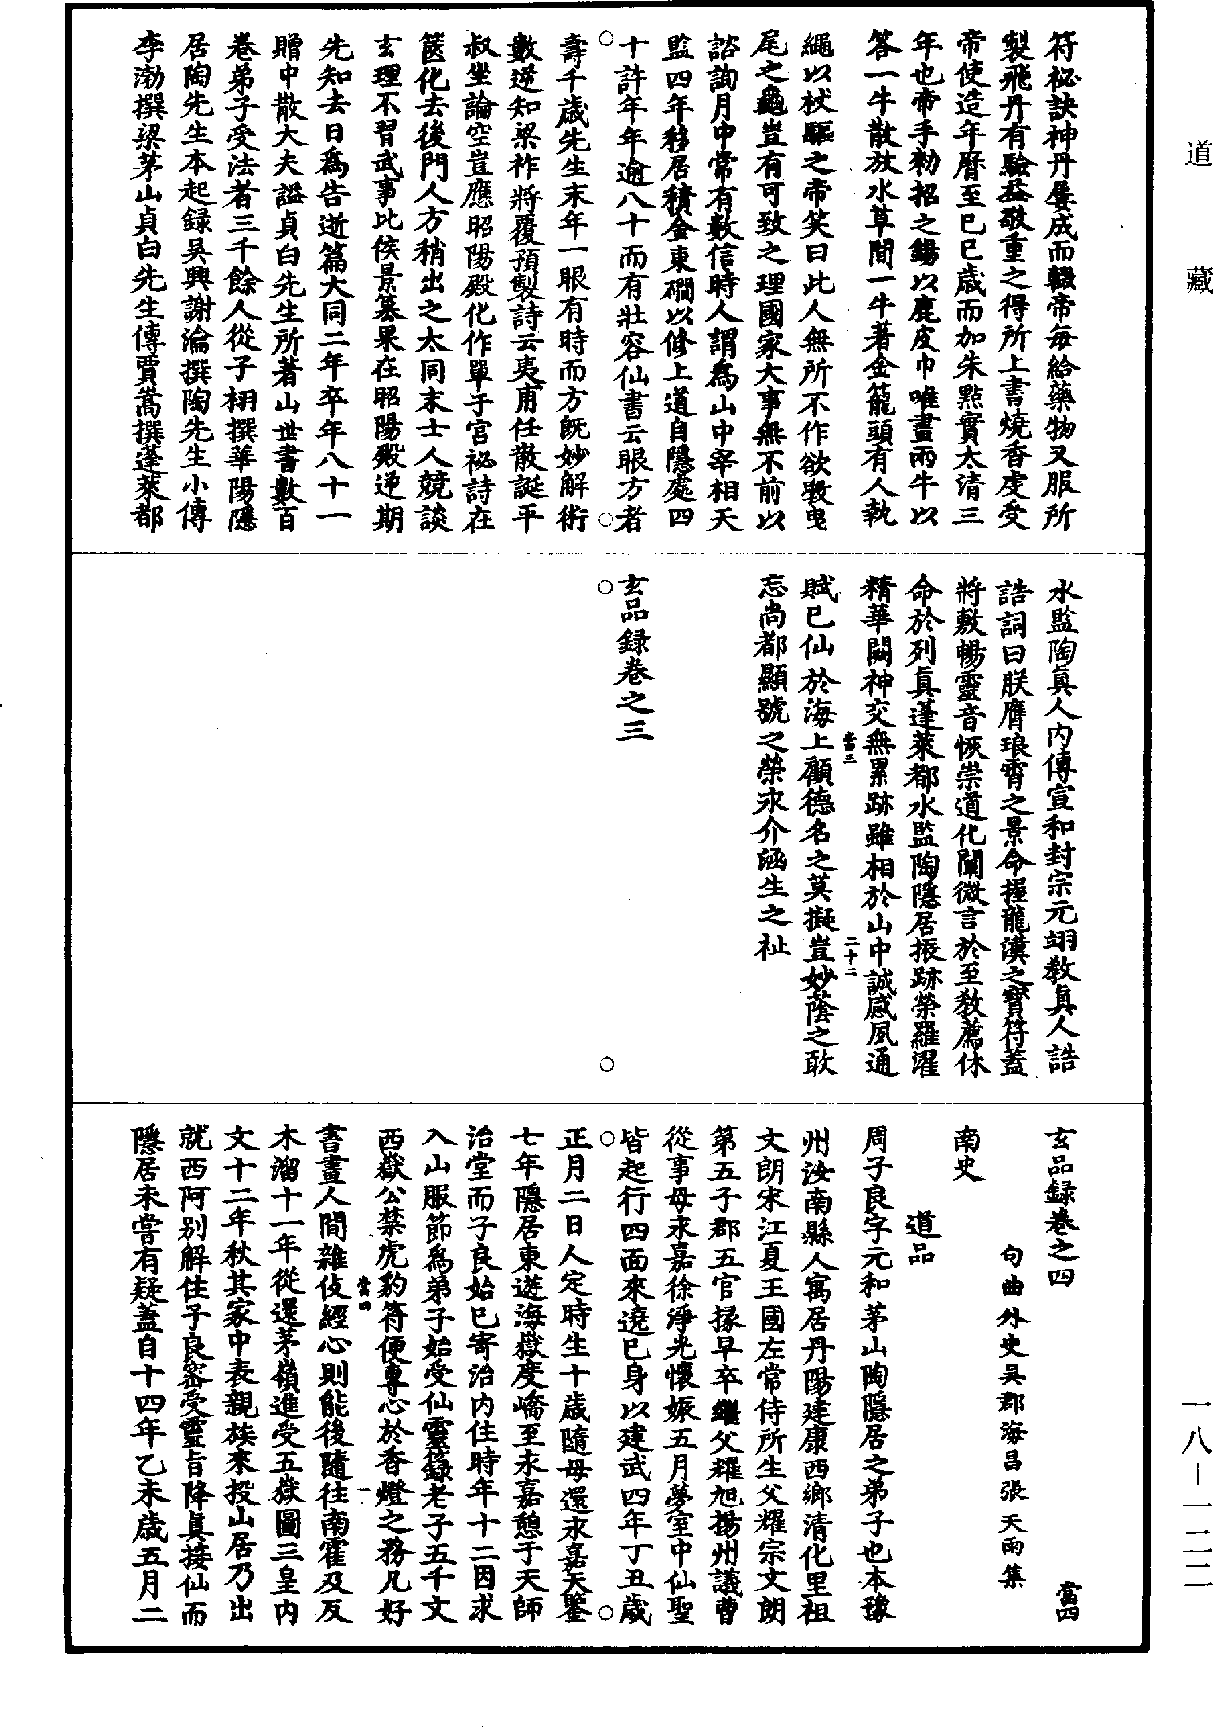 道藏
符祕訣神丹屢成而輟帝每給藥物又服所
製飛丹有驗益敬重之得所上書燒香虔受
帝使造年曆至己巳歲而加朱點實太清三
年也帝手勑招之錫以鹿皮巾唯畫兩牛以
答一牛散放水草間一牛著金籠頭有人執
繩以杖驅之帝笑曰此人無所不作欲斆曳
尾之龜豈有可致之理國家大事無不前以
諮詢月中常有數信時人謂為山中宰相天
監四年移居積金東磵以修上道自隱處四
十許年年逾八十而有壯容仙書云眼方者
壽千歲先生末年一眼有時而方既妙解術
數逆知梁祚將覆預製詩云夷甫任散誕平
叔坐論空豈應昭陽殿化作單于宮祕詩在
篋化去後門人方稍出之大同末士人競談
玄理不習武事比侯景篡果在昭陽殿逆期
先知去日為告逝篇大同二年卒年八十一
贈中散大夫謚貞白先生所著山世書數百
卷弟子受法者三千餘人從子栩撰華陽隱
居陶先生本起録吳興謝瀹撰陶先生小傳
李渤撰梁茅山貞白先生傳賈嵩撰蓬萊都
水監陶真人內傳宣和封宗元翊教真人誥
誥詞曰朕膺琅霄之景命握龍漢之寶符蓋
將敷暢靈音恢崇道化闡微言於至教薦休
命於列真蓬萊都水監陶隱居振跡榮羅濯
精華闕神交無累跡雖相於山中誠感夙通
當三 二十二
賦已仙於海上顧德名之莫擬豈妙蔭之敢
忘尚都顯號之榮永介涵生之祉
玄品録卷之三
玄品録卷之四 當四
句曲外史吳郡海昌張天雨集
南史
道品
周子良字元和茅山陶隱居之弟子也本豫
州汝南縣人寓居丹陽建康西鄉清化里祖
文朗宋江夏王國左常侍所生父耀宗文朗
第五子郡五官掾早卒繼父耀旭揚州議曹
從事母永嘉徐淨光懷娠五月夢室中仙聖
皆起行四面來遶己身以建武四年丁丑歲
正月二日人定時生十歲隨母還永嘉天鑒
七年隱居東遊海嶽度嶠至永嘉憩于天師
治堂而子良始已寄治內住時年十二因求
入山服節為弟子始受仙靈籙老子五千文
西嶽公禁虎豹符便專心於香燈之務凡好
當四 一
書畫人間雜伎經心則能後隨往南霍及反
木溜十一年從還茅嶺進受五嶽圖三皇內
文十二年秋其家中表親族來投山居乃出
就西阿別廨住子良密受靈旨降真接仙而
隱居未嘗有疑蓋自十四年乙未歲五月二
一八－一二二